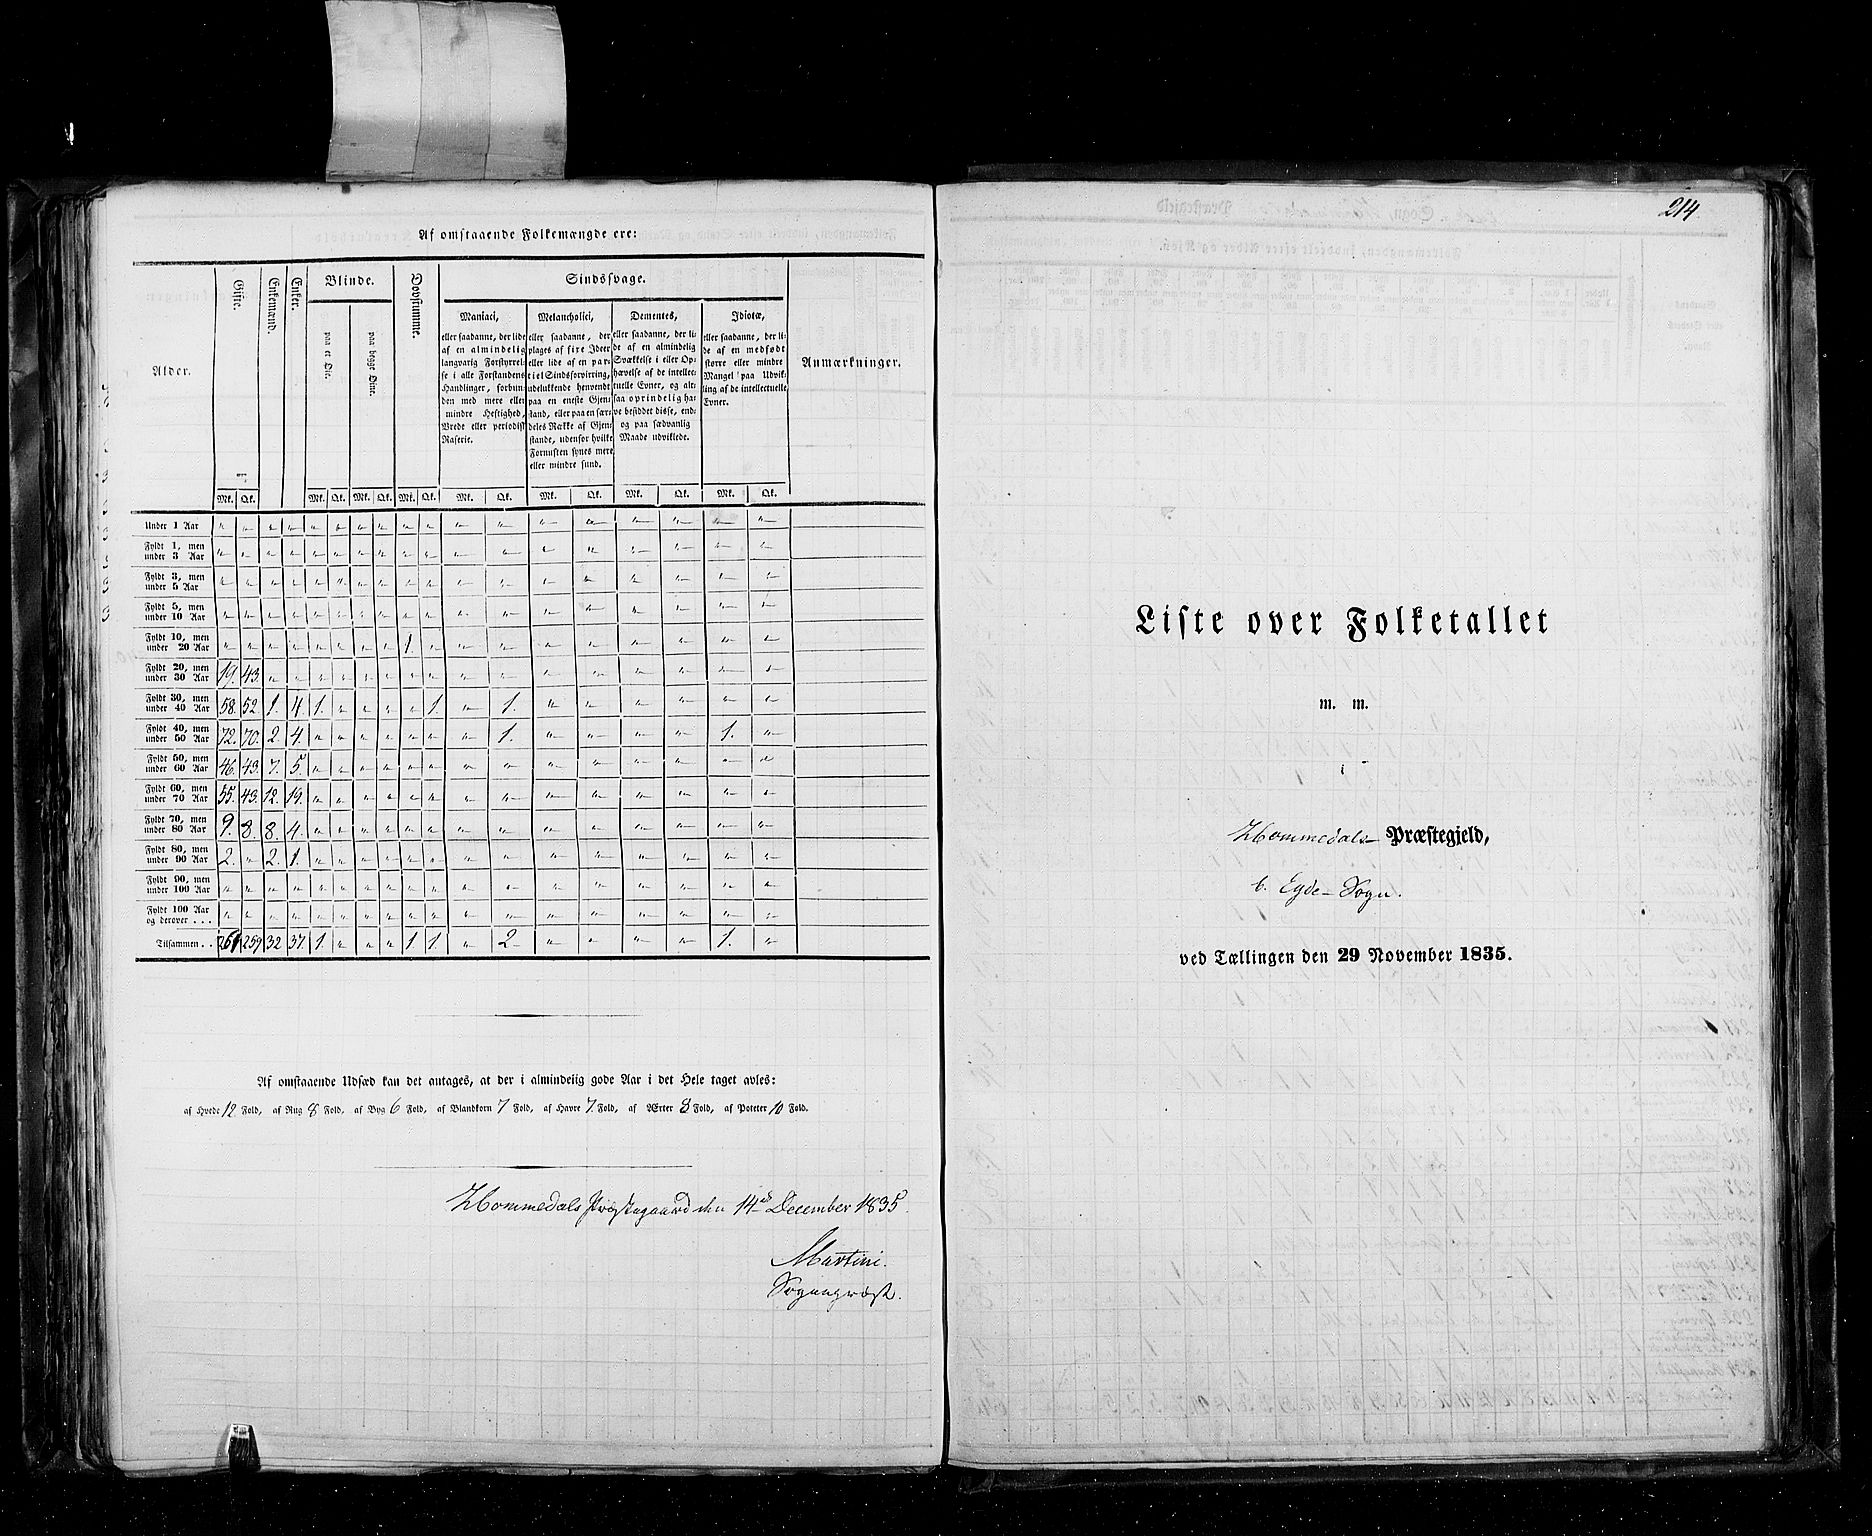 Af omstaaende Folkemængde ere:
Alder. Gifte. Enkemænd. Enker. Blinde. Døvstumme. Sindssvage. Anmærkninger.
paa et Øie. paa begge Øine.
Maniaci,
eller saadanne, der lide
af en almindelig
langvarig Forstyrrel-
se i alle Forstandens
Handlinger, forbun-
den med mere eller
mindre Heftighed,
Vrede eller periodisk
Raserie.
Melancholici,
eller saadanne, der
plages af fixe Ideer
eller lide af en par-
tiel Sindsforvirring,
udelukkende henvendt
paa en eneste Gjen-
stand, eller paa en sær-
deles Række af Gjen-
stande, udenfor hvilke
Fornuften synes mere
eller mindre sund.
Dementes,
eller saadanne, der li-
de af en almindelig
Svækkelse i eller Op-
hævelse af de intellec-
tuelle Evner, og alt-
saa oprindelig ha-
ve besiddet disse, end-
og paa sædvanlig
Maade udviklede.
Idiotæ,
eller saadanne, der li-
de af en medfødt
større eller mindre
Mangel paa Udvik-
ling af de intellectuelle
Evner.
Mk. Qk. Mk. Qk. Mk. Qk. Mk. Qk. Mk. Qk. Mk. Qk. Mk. Qk. Mk. Qk.
Under 1 Aar " " " " " " " " " " " " " " " " " "
Fyldt 1, men
under 3 Aar " " " " " " " " " " " " " " " " " "
Fyldt 3, men
under 5 Aar " " " " " " " " " " " " " " " " " "
Fyldt 5, men
under 10 Aar " " " " " " " " " " " " " " " " " "
Fyldt 10, men
under 20 Aar " " " " " " " " 1. " " " " " " " " "
Fyldt 20, men
under 30 Aar 19. 43. " " " " " " " " " " " " " " " "
Fyldt 30, men
under 40 Aar 58. 52. 1. 4. 1. " " " " 1. " 1. " " " " " "
Fyldt 40, men
under 50 Aar 72. 70. 2. 4. " " " " " " " 1. " " " " 1. "
Fyldt 50, men
under 60 Aar 46. 43. 7. 5. " " " " " " " " " " " " " "
Fyldt 60, men
under 70 Aar 55. 43. 12. 19. " " " " " " " " " " " " " "
Fyldt 70, men
under 80 Aar 9. 8. 8. 4. " " " " " " " " " " " " " "
Fyldt 80, men
under 90 Aar 2. " 2. 1. " " " " " " " " " " " " " "
Fyldt 90, men
under 100 Aar " " " " " " " " " " " " " " " " " "
Fyldt 100 Aar
og derover . . . " " " " " " " " " " " " " " " " " "
Tilsammen . . 261 259 32 37. 1. " " " 1 1. " 2 " " " " 1. "
Af omstaaende Udsæd kan det antages, at der i almindelig gode Aar i det Hele taget avles:
af Hvede 12 Fold, af Rug 8 Fold, af Byg 6 Fold, af Blandkorn 7 Fold, af Havre 7. Fold, af Ærter 8 Fold, af Poteter 10 Fold.
Hommedals Præstegaard den 14de December 1835.
Martini.
Sognepræst.
214
Liste over Folketallet
m. m.
i
Hommedals Præstegjeld,
b. Eyde-Sogn.
ved Tællingen den 29 November 1835.